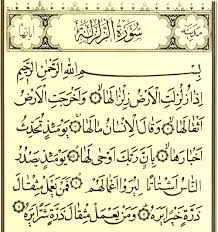 مدنية سُورَةُ الزَّلْزَلَةِ آياتها
بِسْمِ اللَّهِ الرَّحْمَنِ الرَّحِيمِ
إِذَا زُلْزِلَتِ الْأَرْضُ زِلْزَالَهَا وَأَخْرَجَتِ الْأَرْضُ
أَثْقَالَهَا وَقَالَ الْإِنْسَانُ مَا لَهَا يَوْمَئِذٍ تُحَدِّثُ
أَخْبَارَهَا بِأَنَّ رَبَّكَ أَوْحَى لَهَا يَوْمَئِذٍ يَصْدُرُ
النَّاسُ أَشْتَاتًا لِيُرَوْا أَعْمَالَهُمْ فَمَنْ يَعْمَلْ مِثْقَالَ
ذَرَّةٍ خَيْرًا يَرَهُ وَمَنْ يَعْمَلْ مِثْقَالَ ذَرَّةٍ شَرًّا يَرَهُ